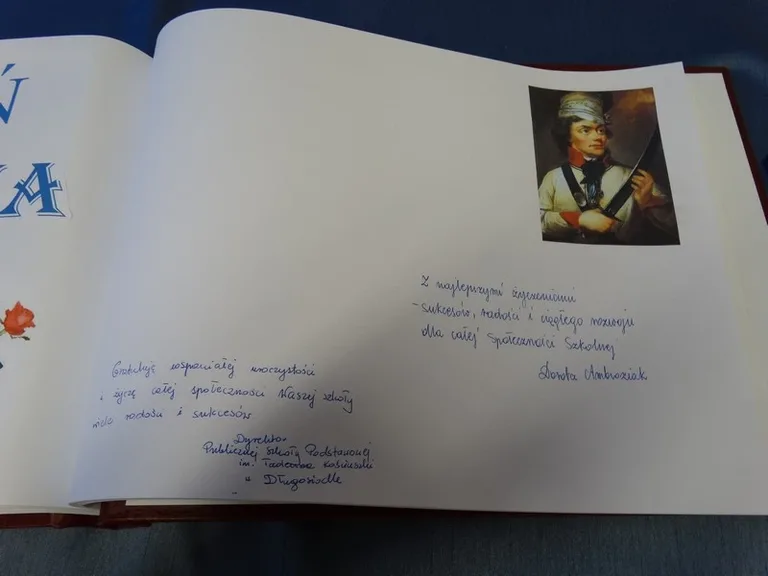 Ń
KA
Z najlepszymi życzeniami
- sukcesów, radości i ciągłego rozwoju
dla całej Społeczności Szkolnej
Dorota Ambroziak
Gratuluję wspaniałej uroczystości
i życzę całej społeczności Waszej szkoły
wiele radości i sukcesów
Dyrektor
Publicznej Szkoły Podstawowej
im. Tadeusza Kościuszki
w Długosiodle